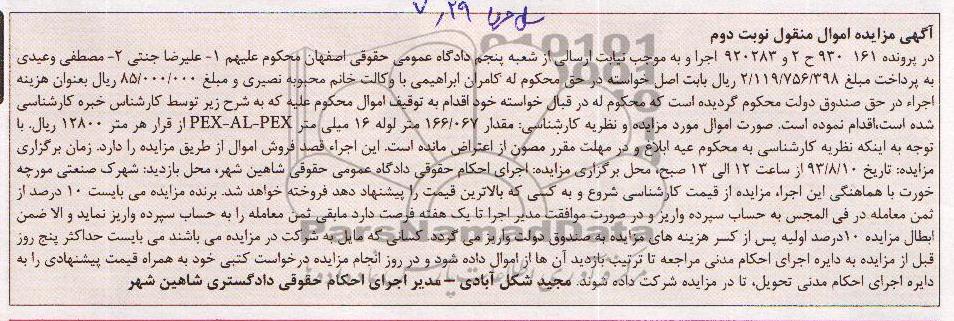 آگهی مزایده اموال منقول نوبت دوم
در پرونده ۱۶۱ ۹۳۰ ح ۲ و ۹۲۰۲۸۳ اجرا و به موجب نیابت ارسالی از شعبه پنجم دادگاه عمومی حقوقی اصفهان محکوم علیهم ۱- علیرضا جنتی ۲- مصطفی وعیدی
به پرداخت مبلغ ۲/۱۱۹/۷۵۶/۳۹۸ ریال بابت اصل خواسته در حق محکوم له کامران ابراهیمی با وکالت خانم محبوبه نصیری و مبلغ ۸۵/۰۰۰/۰۰۰ ریال بعنوان هزینه
اجراء در حق صندوق دولت محکوم گردیده است که محکوم له در قبال خواسته خود اقدام به توقیف اموال محکوم علیه که به شرح زیر توسط کارشناس خبره کارشناسی
شده است،اقدام نموده است. صورت اموال مورد مزایده و نظریه کارشناسی: مقدار ۱۶۶/۰۶۷ متر لوله ۱۶ میلی متر PEX-AL-PEX از قرار هر متر ۱۲۸۰۰ ریال. با
توجه به اینکه نظریه کارشناسی به محکوم عیه ابلاغ و در مهلت مقرر مصون از اعتراض مانده است. این اجراء قصد فروش اموال از طریق مزایده را دارد. زمان برگزاری
مزایده: تاریخ ۹۳/۸/۱۰ از ساعت ۱۲ الی ۱۳ صبح، محل برگزاری مزایده: اجرای احکام حقوقی دادگاه عمومی حقوقی شاهین شهر، محل بازدید: شهرک صنعتی مورچه
خورت با هماهنگی این اجراء، مزایده از قیمت کارشناسی شروع و به کسی که بالاترین قیمت را پیشنهاد دهد فروخته خواهد شد. برنده مزایده می بایست ۱۰ درصد از
ثمن معامله در فی المجس به حساب سپرده واریز و در صورت موافقت مدیر اجرا تا یک هفته فرصت دارد مابقی ثمن معامله را به حساب سپرده واریز نماید و الا ضمن
ابطال مزایده ۱۰درصد اولیه پس از کسر هزینه های مزایده به صندوق دولت واریز می گردد. کسانی که مایل به شرکت در مزایده می باشند می بایست حداکثر پنج روز
قبل از مزایده به دایره اجرای احکام مدنی مراجعه تا ترتیب بازدید آن ها از اموال داده شود و در روز انجام مزایده درخواست کتبی خود به همراه قیمت پیشنهادی را به
دایره اجرای احکام مدنی تحویل، تا در مزایده شرکت داده شوند. مجید شکل آبادی – مدیر اجرای احکام حقوقی دادگستری شاهین شهر
ParsNamadData